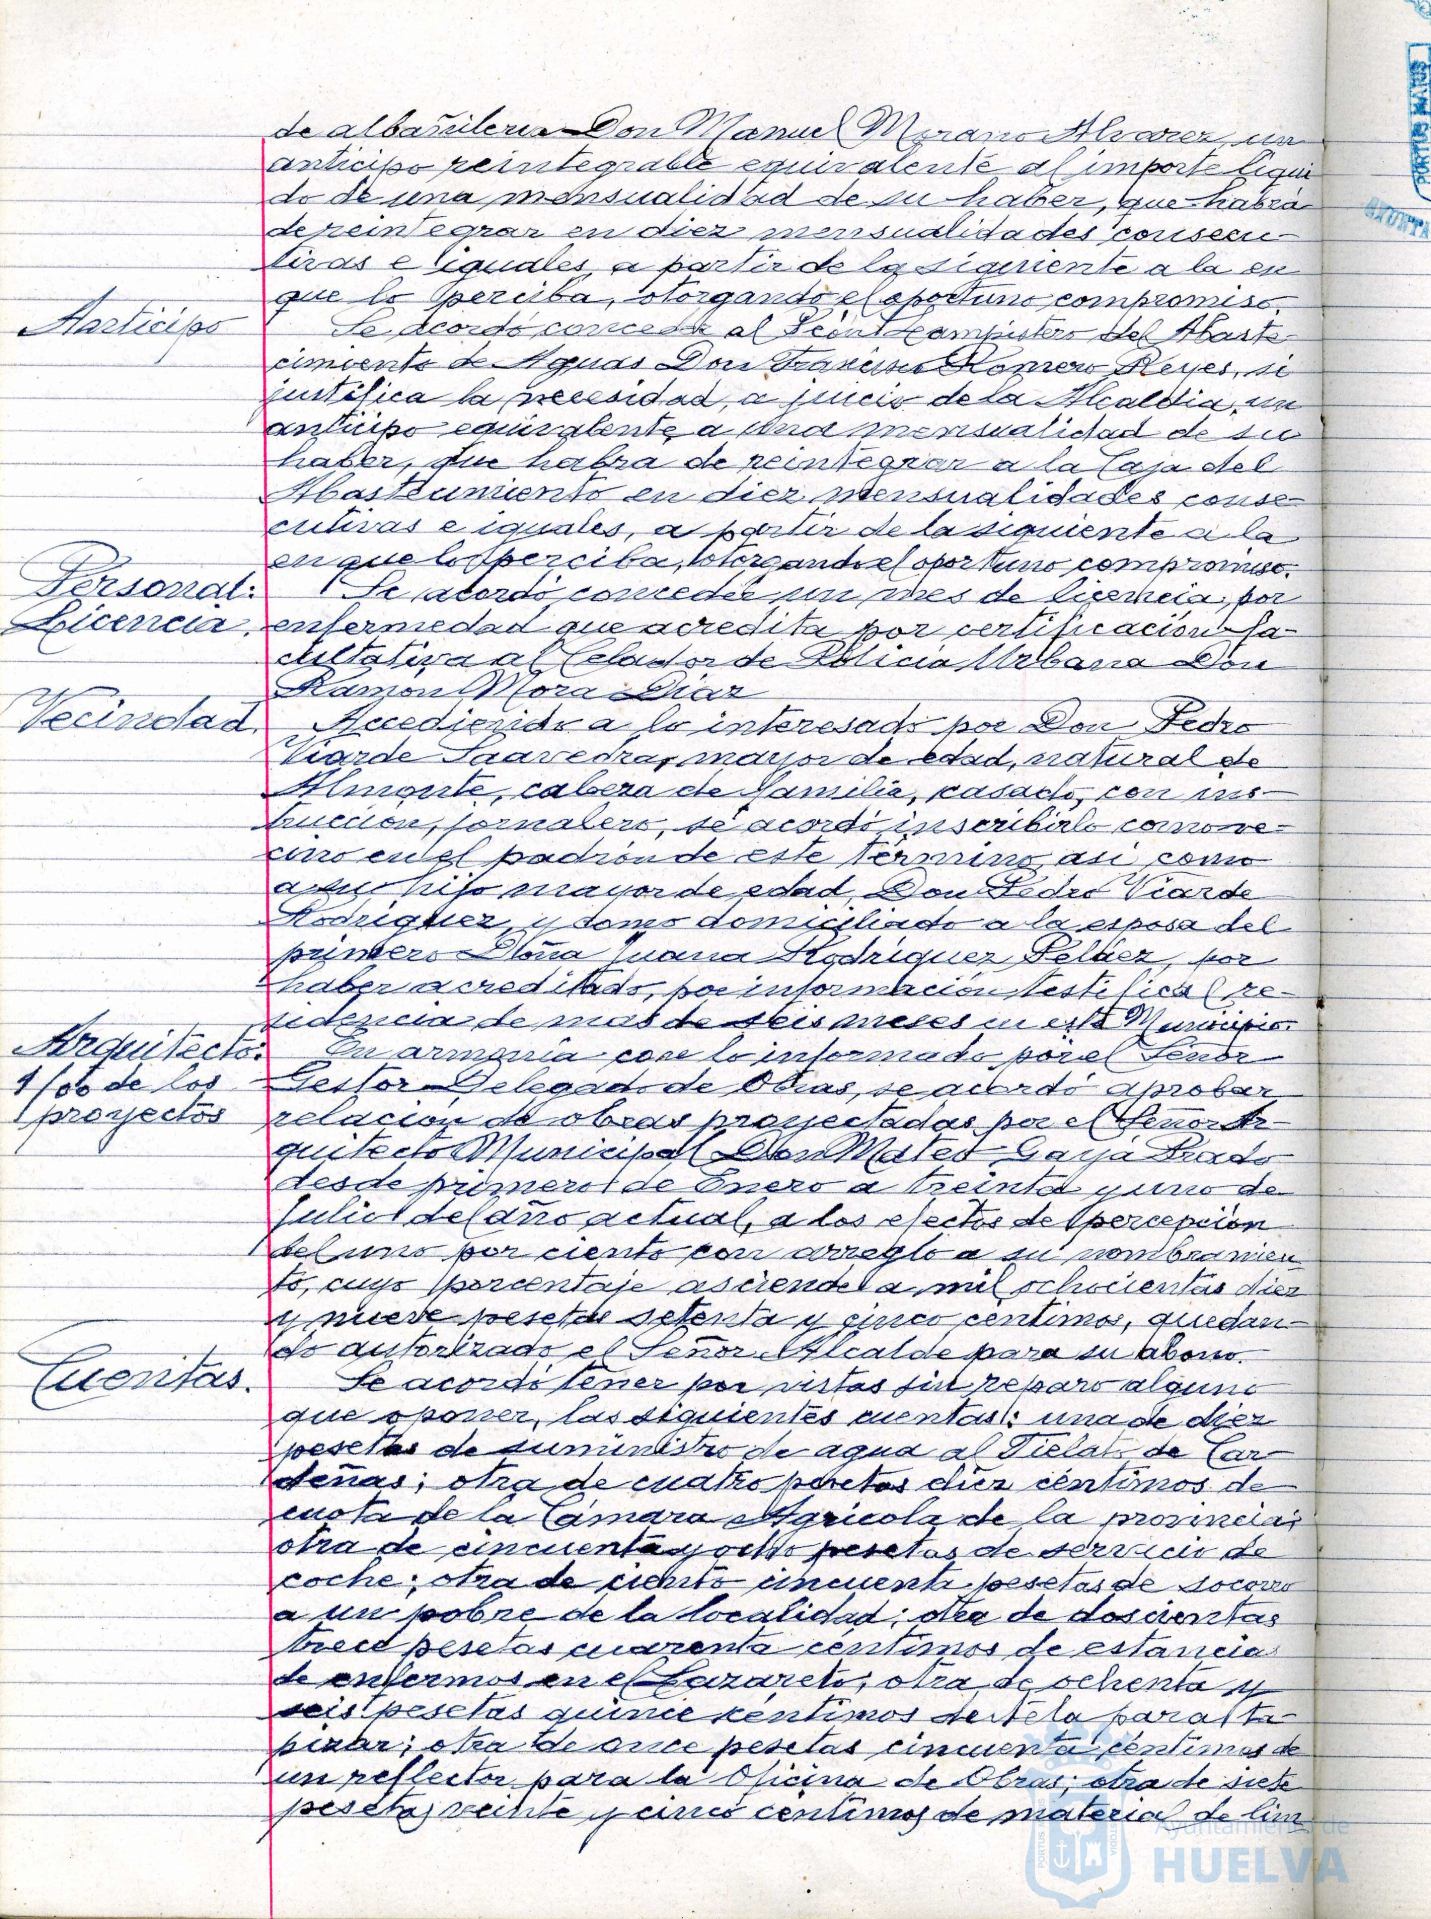 de albañileria Don Manuel Morano Alvarez, un
anticipo reintegrable equivalente al importe liqui
do de una mensualidad de su haber, que habrá
de reintegrar en diez mensualidades consecu-
tivas e iguales, a partir de la siguiente a la en
que lo perciba, otorgando el oportuno compromiso.
Anticipo
Se acordó conceder al Peón Campistero del Abaste-
cimiento de Aguas Don Francisco Romero Reyes, si
justifica la necesidad, a juicio de la Alcaldia, un
anticipo equivalente a una mensualidad de su
haber, que habra de reintegrar a la Caja del
Abastecimiento en diez mensualidades conse-
cutivas e iguales, a partir de la siguiente a la
en que lo perciba, otorgando el oportuno compromiso.
Personal:
Licencia.
Se acordó conceder un mes de licencia, por
enfermedad que acredita por certificación fa-
cultativa al Celador de Policia Urbana Don
Ramón Mora Diaz
Vecindad.
Accediendo a lo interesado por Don Pedro
Viarde Saavedra, mayor de edad, natural de
Almonte, cabeza de familia, casado, con ins-
trucción, jornalero, se acordó inscribirlo como ve-
cino en el padrón de este término, asi como
a su hijo mayor de edad, Don Pedro Viarde
Rodriguez, y como domiciliado a la esposa del
primero Doña Juana Rodriguez Peláez, por
haber acreditado, por información testifical re-
sidencia de mas de seis meses en este Municipio.
Arquitecto:
1/00 de los
proyectos
En armonía con lo informado por el Señor
Gestor Delegado de Obras, se acordó aprobar
relación de obras proyectadas por el Señor Ar-
quitecto Municipal Don Mateo Gayá Prado
desde primero de Enero a treinta y uno de
Julio del año actual, a los efectos de percepción
del uno por ciento con arreglo a su nombramien
to, cuyo porcentaje asciende a mil ochocientas diez
y nueve pesetas setenta y cinco céntimos, quedan-
do autorizado el Señor Alcalde para su abono.
Cuentas.
Se acordó tener por vistas sin reparo alguno
que oponer, las siguientes cuentas: una de diez
pesetas de suministro de agua al de Car-
deñas; otra de cuatro pesetas diez céntimos de
cuota de la Cámara Agricola de la provincia;
otra de cincuenta y ocho pesetas de servicio de
coche; otra de ciento cincuenta pesetas de socorro
a un pobre de la localidad; otra de doscientas
trece pesetas cuarenta céntimos de estancias
de enfermos en el Lazareto; otra de ochenta y
seis pesetas quince céntimos de tela para ta-
pizar; otra de once pesetas cincuenta céntimos de
un reflector para la Oficina de Obras; otra de siete
pesetas veinte y cinco céntimos de material de lim
PORTUS MARIS
AYUNTA
Ayuntamiento de
HUELVA